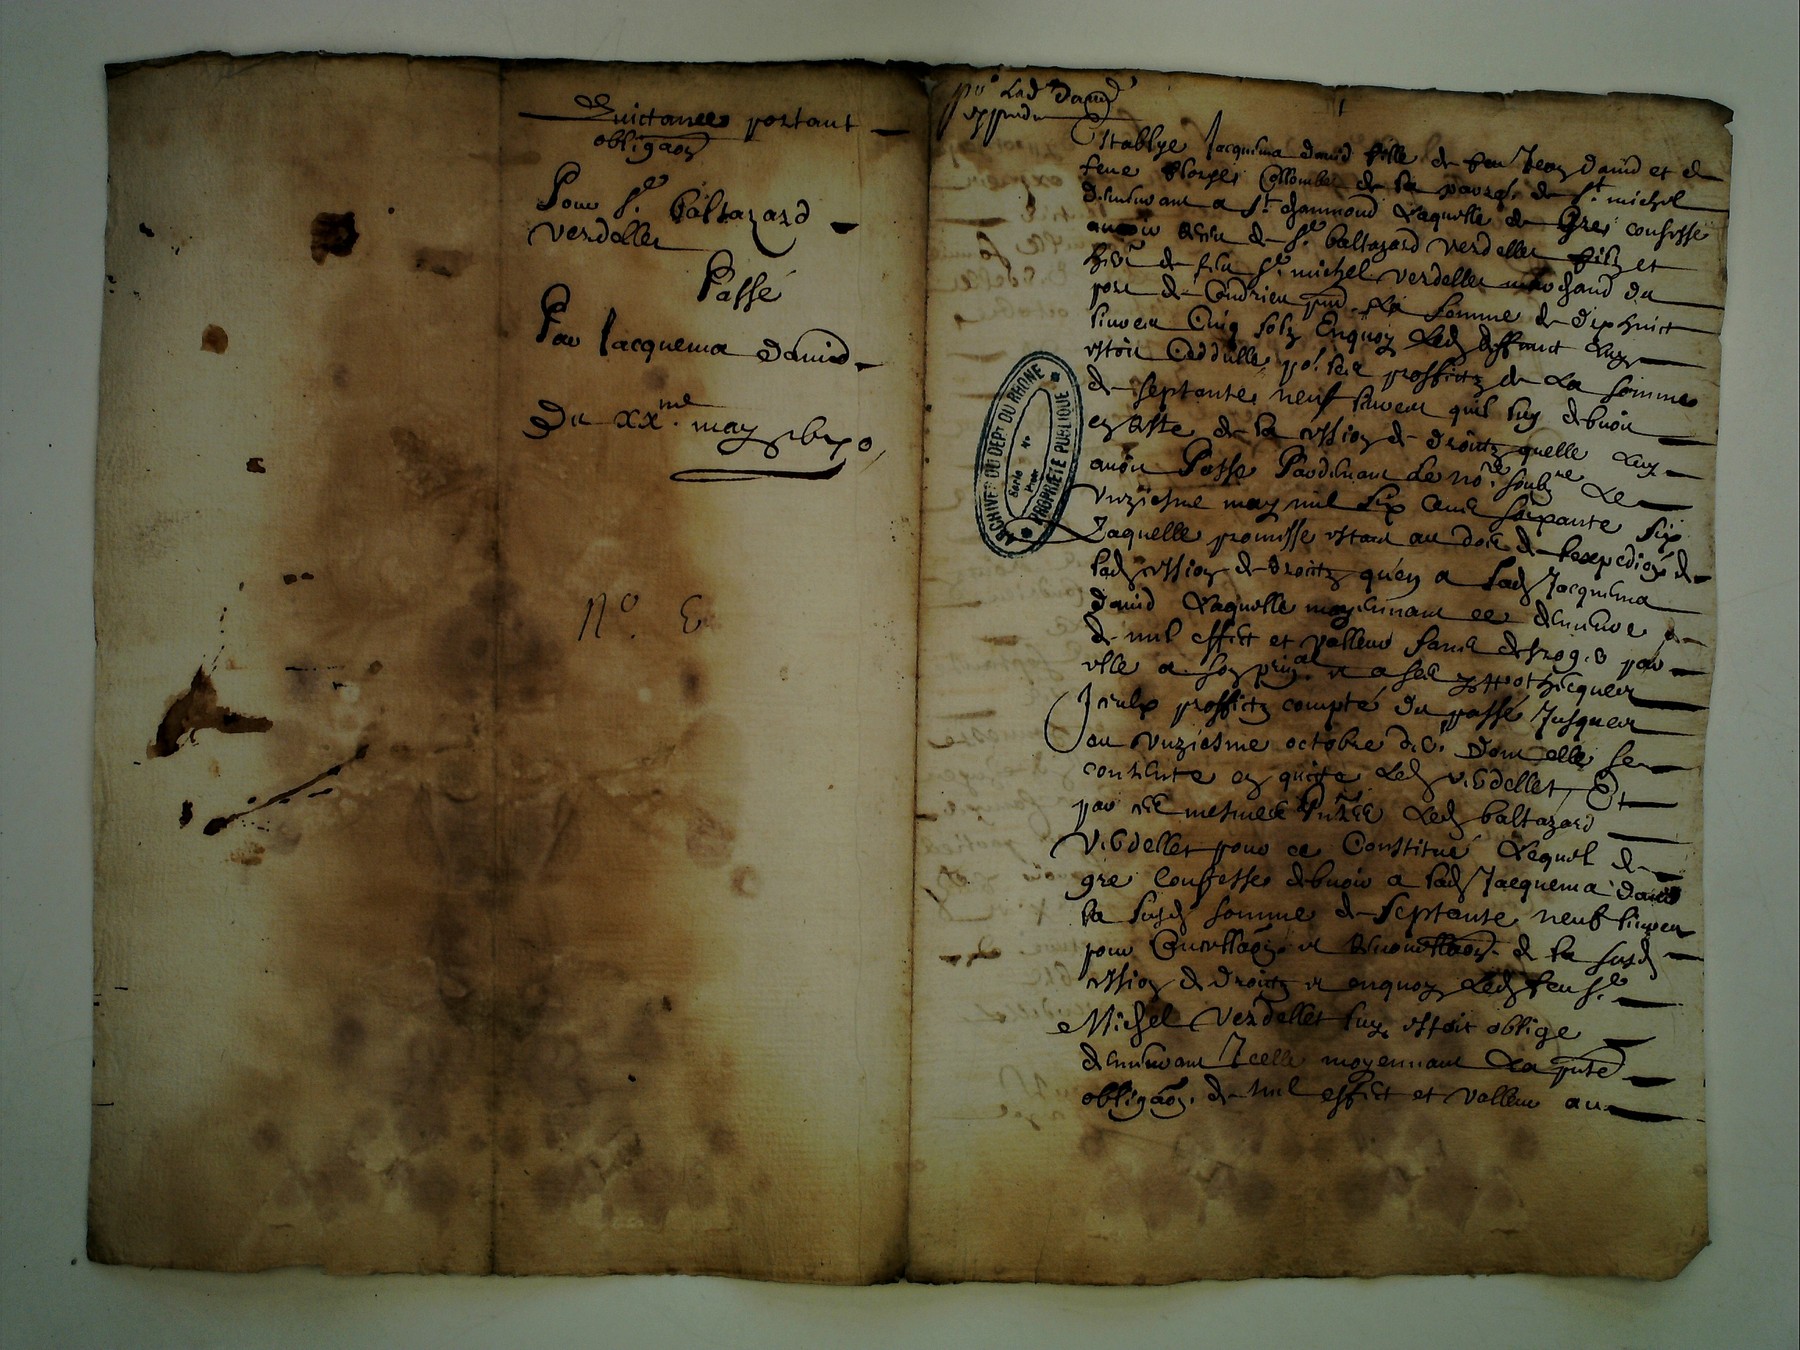 Quictance portant
obligaon
Pour Sr. Baltazard
Verdellet
Passé
Par Jacquema David
Du xx.me may
No. E
por Lad david
expedie
1
Establye Jacquema david fille de feu Jean david et de
feue Collombet de la paroisse de St. michel
demeurant a St. chammond Laquelle de Gre confesse
avoir de Sr. baltazard Verdellet filz et
de feu Sr. michel Verdellet marchand du
port de Condrieu pnt. La somme de dix huict
livres Cinq solz Enquoy Led deffunct Luy
estoit Cedulle por. les proffictz de La somme
de septante neuf livres quil luy debvoit
en reste de la cession de droictz quelle Luy
avoit Passe Pardevant Le no.re soubzne Le
Unziesme may mil six Cens soixante six
Laquelle promesse estant au dos de lexpedition de
lad cession de droictz quen a Lad Jacquema
david Laquelle moyennant ce demeure
de nul effect et valleur sans desroger par
elle a son prin.al et a ses yppothecques
Iceulx proffictz compte du passé Jusques
au unziesme octobre der. dont elle se
contente en quitte Led Verdellet Et
par ces mesmes pntes Led baltazard
Verdellet pour ce Constitué Lequel de
gre Confesse debvoir a Lad Jacquema david
la susd somme de septante neuf livres
pour de la susd
cession de droictz et enquoy Led feu Sr.
Michel Verdellet luy estoit oblige
demeurant Icelle moyennant La pnte
obligaon. de nul effect et valleur au
ARCHIVES DU DEPT DU RHONE
PROPRIETE PUBLIQUE